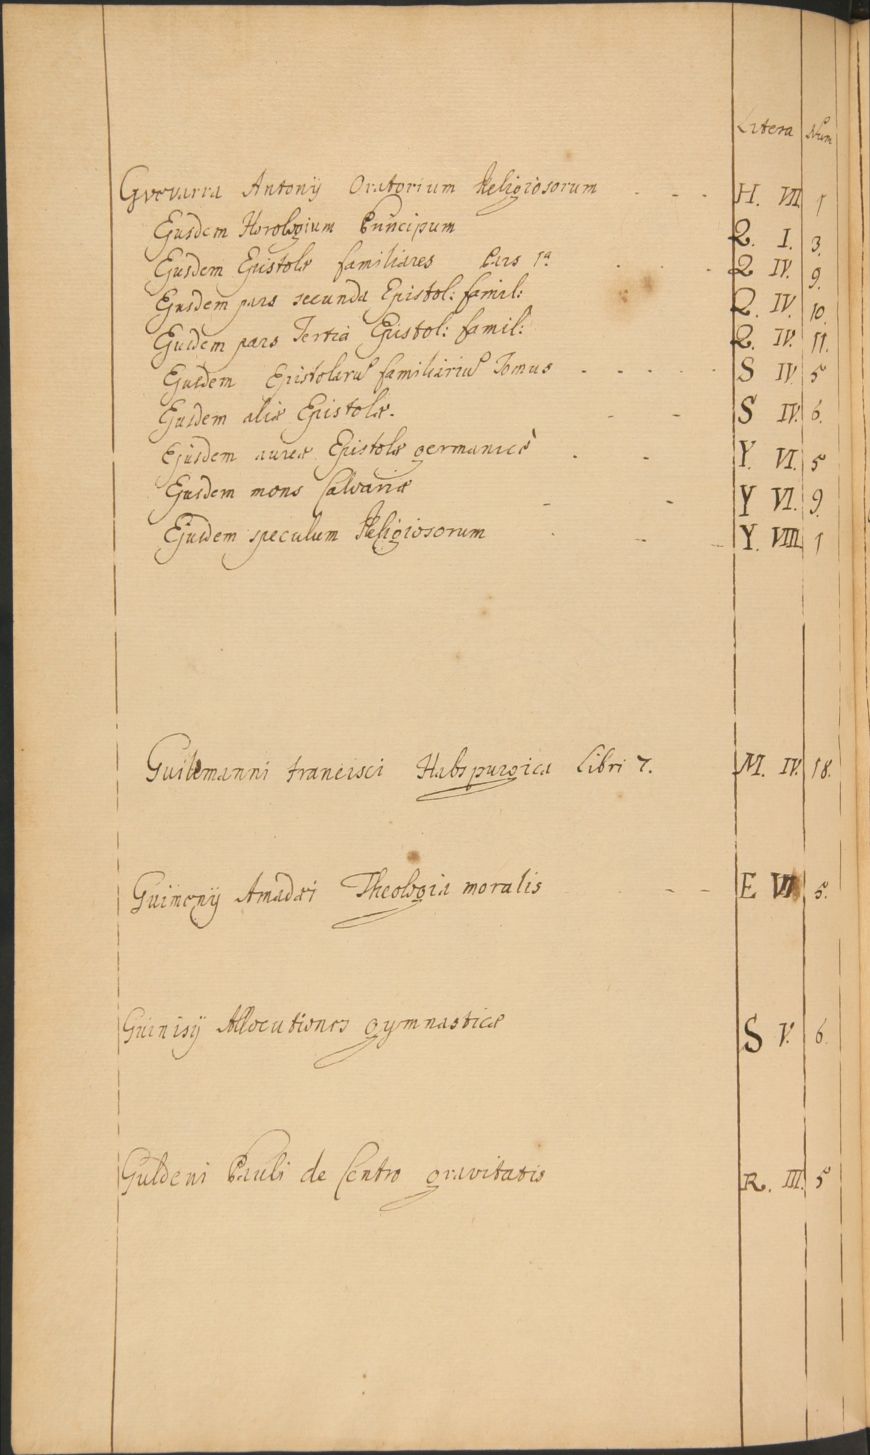 Litera Num
Guevarra Antonÿ Oratorium Religiosorum - - - H. VII. 1
Eiusdem Horologium Principum Q. I. 3.
Eiusdem Epistolæ familiares Pars 1ª . . . Q IV. 9.
Eiusdem pars secunda Epistol: famil: Q. IV. 10.
Eiusdem pars Tertia Epistol: famil: Q. IV. 11.
Eiusdem Epistolarũ familiariũ Tomus - - - - - S IV. 5
Eiusdem aliæ Epistolæ. - - S IV. 6.
Eiusdem aureæ Epistolæ germanicè . - Y. VI. 5
Eiusdem mons Calvariæ - - Y VI. 9.
Eiusdem speculum Religiosorum . - - Y. VIII. 1
Guilemanni francisci Habspurgica Libri 7. M. IV. 18.
Guimenÿ Amadæi Theologia moralis - - E VI 5.
Guinisÿ Allocutiones gymnasticæ S V. 6.
Guldeni Pauli de Centro gravitatis R. III. 5